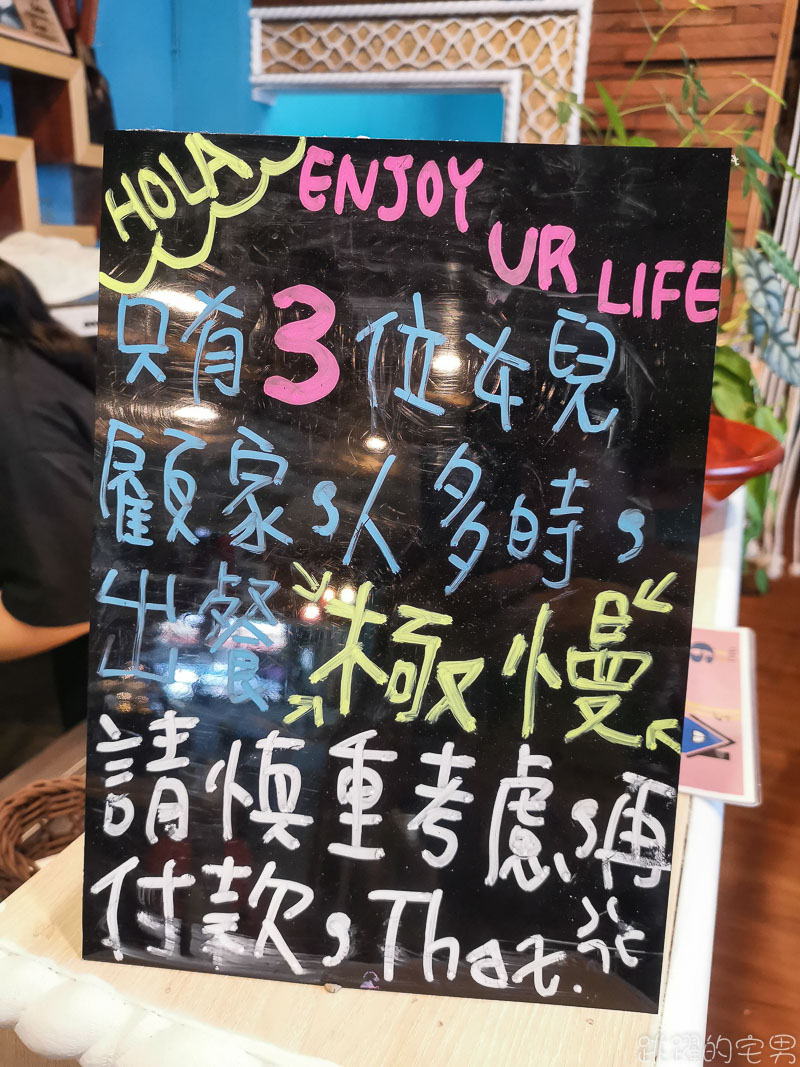 HOLA
ENJOY
UR LIFE
只有3位女兒
顧家,人多時,
出餐極慢
請慎重考慮,再
付款,That.
6
跳躍的宅男